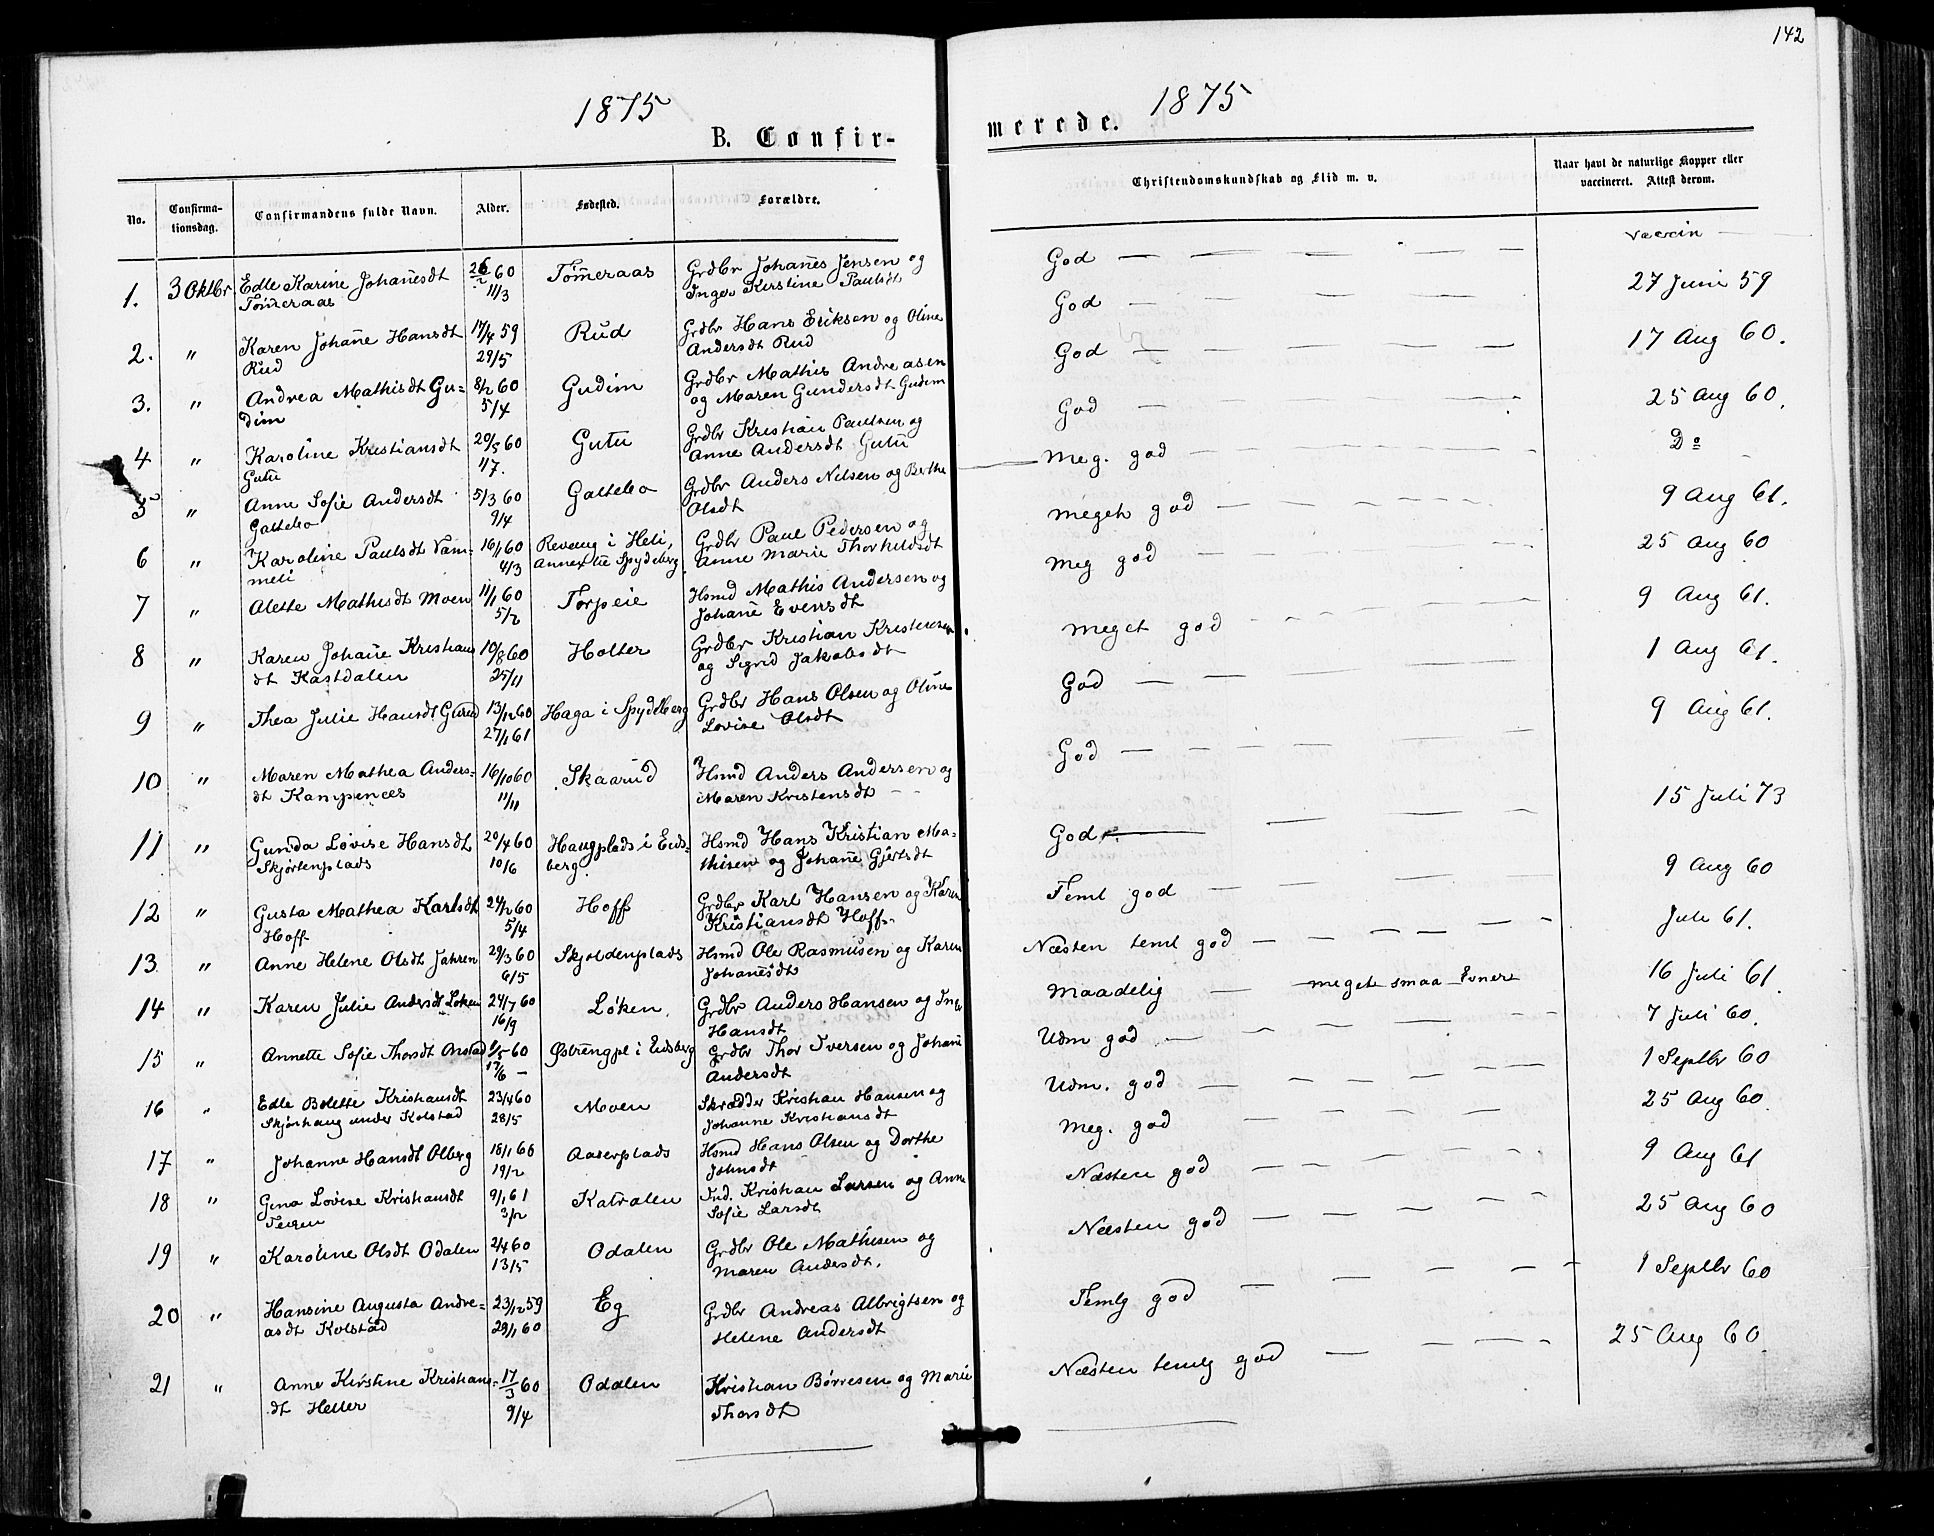 142
1875
1875
B. Confir-
merede.
No.
Confirma-
tionsdag.
Confirmandens fulde Navn.
Alder.
Fødested.
Forældre.
Christendomskundskab og Flid m. v.
Naar havt de naturlige Kopper eller
vaccineret. Attest derom.
vaccin
1. 3 Oktbr Edle Karine Johañesdt 26/2 60 Tømeraas Grdbr Johañes Jensen og God
Tømeraas 11/3 Inger Kirstine Paulsdt
27 Juni 59
2. " Karen Johañe Hansdt 17/4 59 Rud Grdbr Hans Eriksen og Oline God
Rud 29/5 Andersdt Rud
17 Aug 60.
3. " Andrea Mathisdt Gu- 8/2 60 Gudim Grdbr Mathis Andreasen God
dim 5/4 og Maren Gundersdt Gudim
25 Aug 60.
4 " Karoline Kristiansdt 20/5 60 Gutu Grdbr Kristian Paulsen og God
Gutu 1/7. Anne Andersdt Gutu
Do
5 " Anne Sofie Andersdt 5/3 60 Galtebo Grdbr Anders Nilsen og Berthe Meg. god
Galtebo 9/4 Olsdt
9 Aug 61.
6 " Karoline Paulsdt Vam- 16/1 60 Revaug i Heli, Grdbr Paul Pedersen og meget god
meli 4/3 Annex til Spydeberg Anne Marie Thorkildsdt
25 Aug 60
7 " Alette Mathisdt Moen 11/1 60 Torpeie Hsmd Mathis Andersen og Meg god
5/2 Johañe Evensdt
9 Aug 61.
8 " Karen Johañe Kristians 10/8 60 Holter Grdbr Kristian Kristensen meget god
dt Kastdalen 25/11 og Sigrid Jakobsdt
1 Aug 61.
9 " Thea Julie Hansdt Glerud 13/12 60 Haga i Spydeberg Grdbr Hans Olsen og Oline God
27/1 61 Lovise Olsdt
9 Aug 61.
10 " Maren Mathea Anders- 16/10 60 Skaarud Hsmd Anders Andersen og God
dt Kampenæs 11/11 Maren Kristensdt
15 Juli 73
11 " Gunda Lovise Hansdt 20/4 60 Haugplads i Eids- Hsmd Hans Kristian Ma- God
Skjørtenplads 10/6 berg thisen og Johañe Gjertsdt
9 Aug 60
12 " Gusta Mathea Karlsdt 24/2 60 Hoff Grdbr Karl Hansen og Karen Teml god
Hoff 5/4 Kristiansdt Hoff
Juli 61.
13 " Anne Helene Olsdt Jahren 29/3 60 Skjoldenplads Hsmd Ole Rasmusen og Karen Næsten teml god
6/5 Johañesdt
16 Juli 61
14 " Karen Julie Andersdt Løken 24/7 60 Løken Grdbr Anders Hansen og Inger Maadelig — meget smaa Evner
16/9 Hansdt
7 Juli 60.
15 " Annette Sofie Thorsdt Onstad 1/5 60 Østrengpl i Eidsberg Grdbr Thor Iversen og Johañe Udm god
17/6 — Andersdt
1 Septbr 60
16 " Edle Bolette Kristiansdt 23/4 60 Moen Skrædder Kristian Hansen og Udm. god
Skjørhaug under Kolstad 28/5 Johanne Kristiansdt
25 Aug 60
17 " Johanne Hansdt Olberg 18/1 60 Aaserplads Hsmd Hans Olsen og Dorthe Meg. god
19/2 Johnsdt
9 Aug 61
18 " Gina Lovise Kristiansdt 9/1 61 Katralen Ind. Kristian Larsen og Anne Næsten god
Teigen 3/2 Sofie Larsdt
25 Aug 60
19 " Karoline Olsdt Odalen 2/4 60 Odalen Grdbr Ole Mathisen og Næsten god
13/5 Maren Andersdt.
1 Septbr 60
20 " Hansine Augusta Andre- 23/12 59 Eg Grdbr Andreas Albrigtsen og Temlg god
asdt Kolstad 29/1 60 Helene Andersdt
25 Aug 60
21 " Anne Kirstine Kristians- 17/3 60 Odalen Kristian Børresen og Marie Næsten temlg god
dt Heller 9/4 Thorsdt